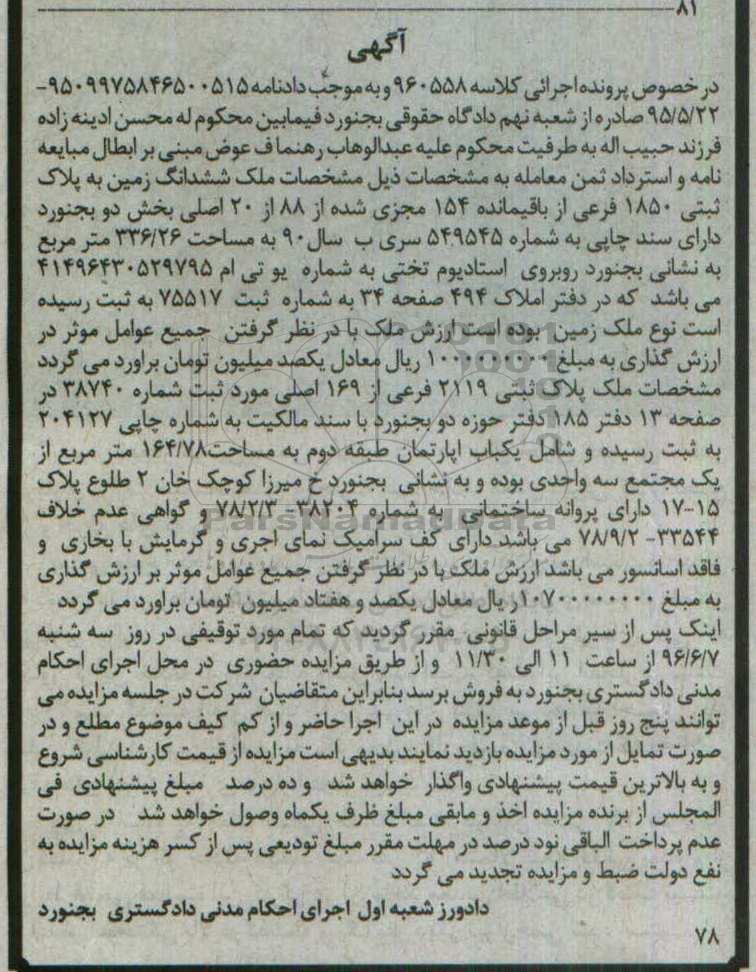 ۸۱
آگهی
در خصوص پرونده اجرائی کلاسه ۹۶۰۵۵۸ و به موجب دادنامه ۹۵۰۹۹۷۵۸۴۶۵۰۰۵۱۵-
۹۵/۵/۲۲ صادره از شعبه نهم دادگاه حقوقی بجنورد فیمابین محکوم له محسن ادینه زاده
فرزند حبیب اله به طرفیت محکوم علیه عبدالوهاب رهنما ف عوض مبنی بر ابطال مبایعه
نامه و استرداد ثمن معامله به مشخصات ذیل مشخصات ملک ششدانگ زمین به پلاک
ثبتی ۱۸۵۰ فرعی از باقیمانده ۱۵۴ مجزی شده از ۸۸ از ۲۰ اصلی بخش دو بجنورد
دارای سند چاپی به شماره ۵۴۹۵۴۵ سری ب سال ۹۰ به مساحت ۳۳۶/۲۶ متر مربع
به نشانی بجنورد روبروی استادیوم تختی به شماره یو تی ام ۴۱۴۹۶۴۳۰۵۲۹۷۹۵
می باشد که در دفتر املاک ۴۹۴ صفحه ۳۴ به شماره ثبت ۷۵۵۱۷ به ثبت رسیده
است نوع ملک زمین بوده است ارزش ملک با در نظر گرفتن جمیع عوامل موثر در
ارزش گذاری به مبلغ ۱۰۰۰۰۰۰۰۰۰ ریال معادل یکصد میلیون تومان براورد می گردد
مشخصات ملک پلاک ثبتی ۲۱۱۹ فرعی از ۱۶۹ اصلی مورد ثبت شماره ۳۸۷۴۰ در
صفحه ۱۳ دفتر ۱۸۵ دفتر حوزه دو بجنورد با سند مالکیت به شماره چاپی ۲۰۴۱۲۷
به ثبت رسیده و شامل یکباب اپارتمان طبقه دوم به مساحت ۱۶۴/۷۸ متر مربع از
یک مجتمع سه واحدی بوده و به نشانی بجنورد خ میرزا کوچک خان ۲ طلوع پلاک
۱۷-۱۵ دارای پروانه ساختمانی به شماره ۳۸۲۰۴- ۷۸/۲/۳ و گواهی عدم خلاف
۳۳۵۴۴- ۷۸/۹/۲ می باشد دارای کف سرامیک نمای اجری و گرمایش با بخاری و
فاقد اسانسور می باشد ارزش ملک با در نظر گرفتن جمیع عوامل موثر بر ارزش گذاری
به مبلغ ۱۰۷۰۰۰۰۰۰۰۰ر یال معادل یکصد و هفتاد میلیون تومان براورد می گردد
اینک پس از سیر مراحل قانونی مقرر گردید که تمام مورد توقیفی در روز سه شنبه
۹۶/۶/۷ از ساعت ۱۱ الی ۱۱/۳۰ و از طریق مزایده حضوری در محل اجرای احکام
مدنی دادگستری بجنورد به فروش برسد بنابراین متقاضیان شرکت در جلسه مزایده می
توانند پنج روز قبل از موعد مزایده در این اجرا حاضر و از کم کیف موضوع مطلع و در
صورت تمایل از مورد مزایده بازدید نمایند بدیهی است مزایده از قیمت کارشناسی شروع
و به بالاترین قیمت پیشنهادی واگذار خواهد شد و ده درصد مبلغ پیشنهادی فی
المجلس از برنده مزایده اخذ و مابقی مبلغ ظرف یکماه وصول خواهد شد در صورت
عدم پرداخت الباقی نود درصد در مهلت مقرر مبلغ تودیعی پس از کسر هزینه مزایده به
نفع دولت ضبط و مزایده تجدید می گردد
دادورز شعبه اول اجرای احکام مدنی دادگستری بجنورد
۷۸
ParsNamadData